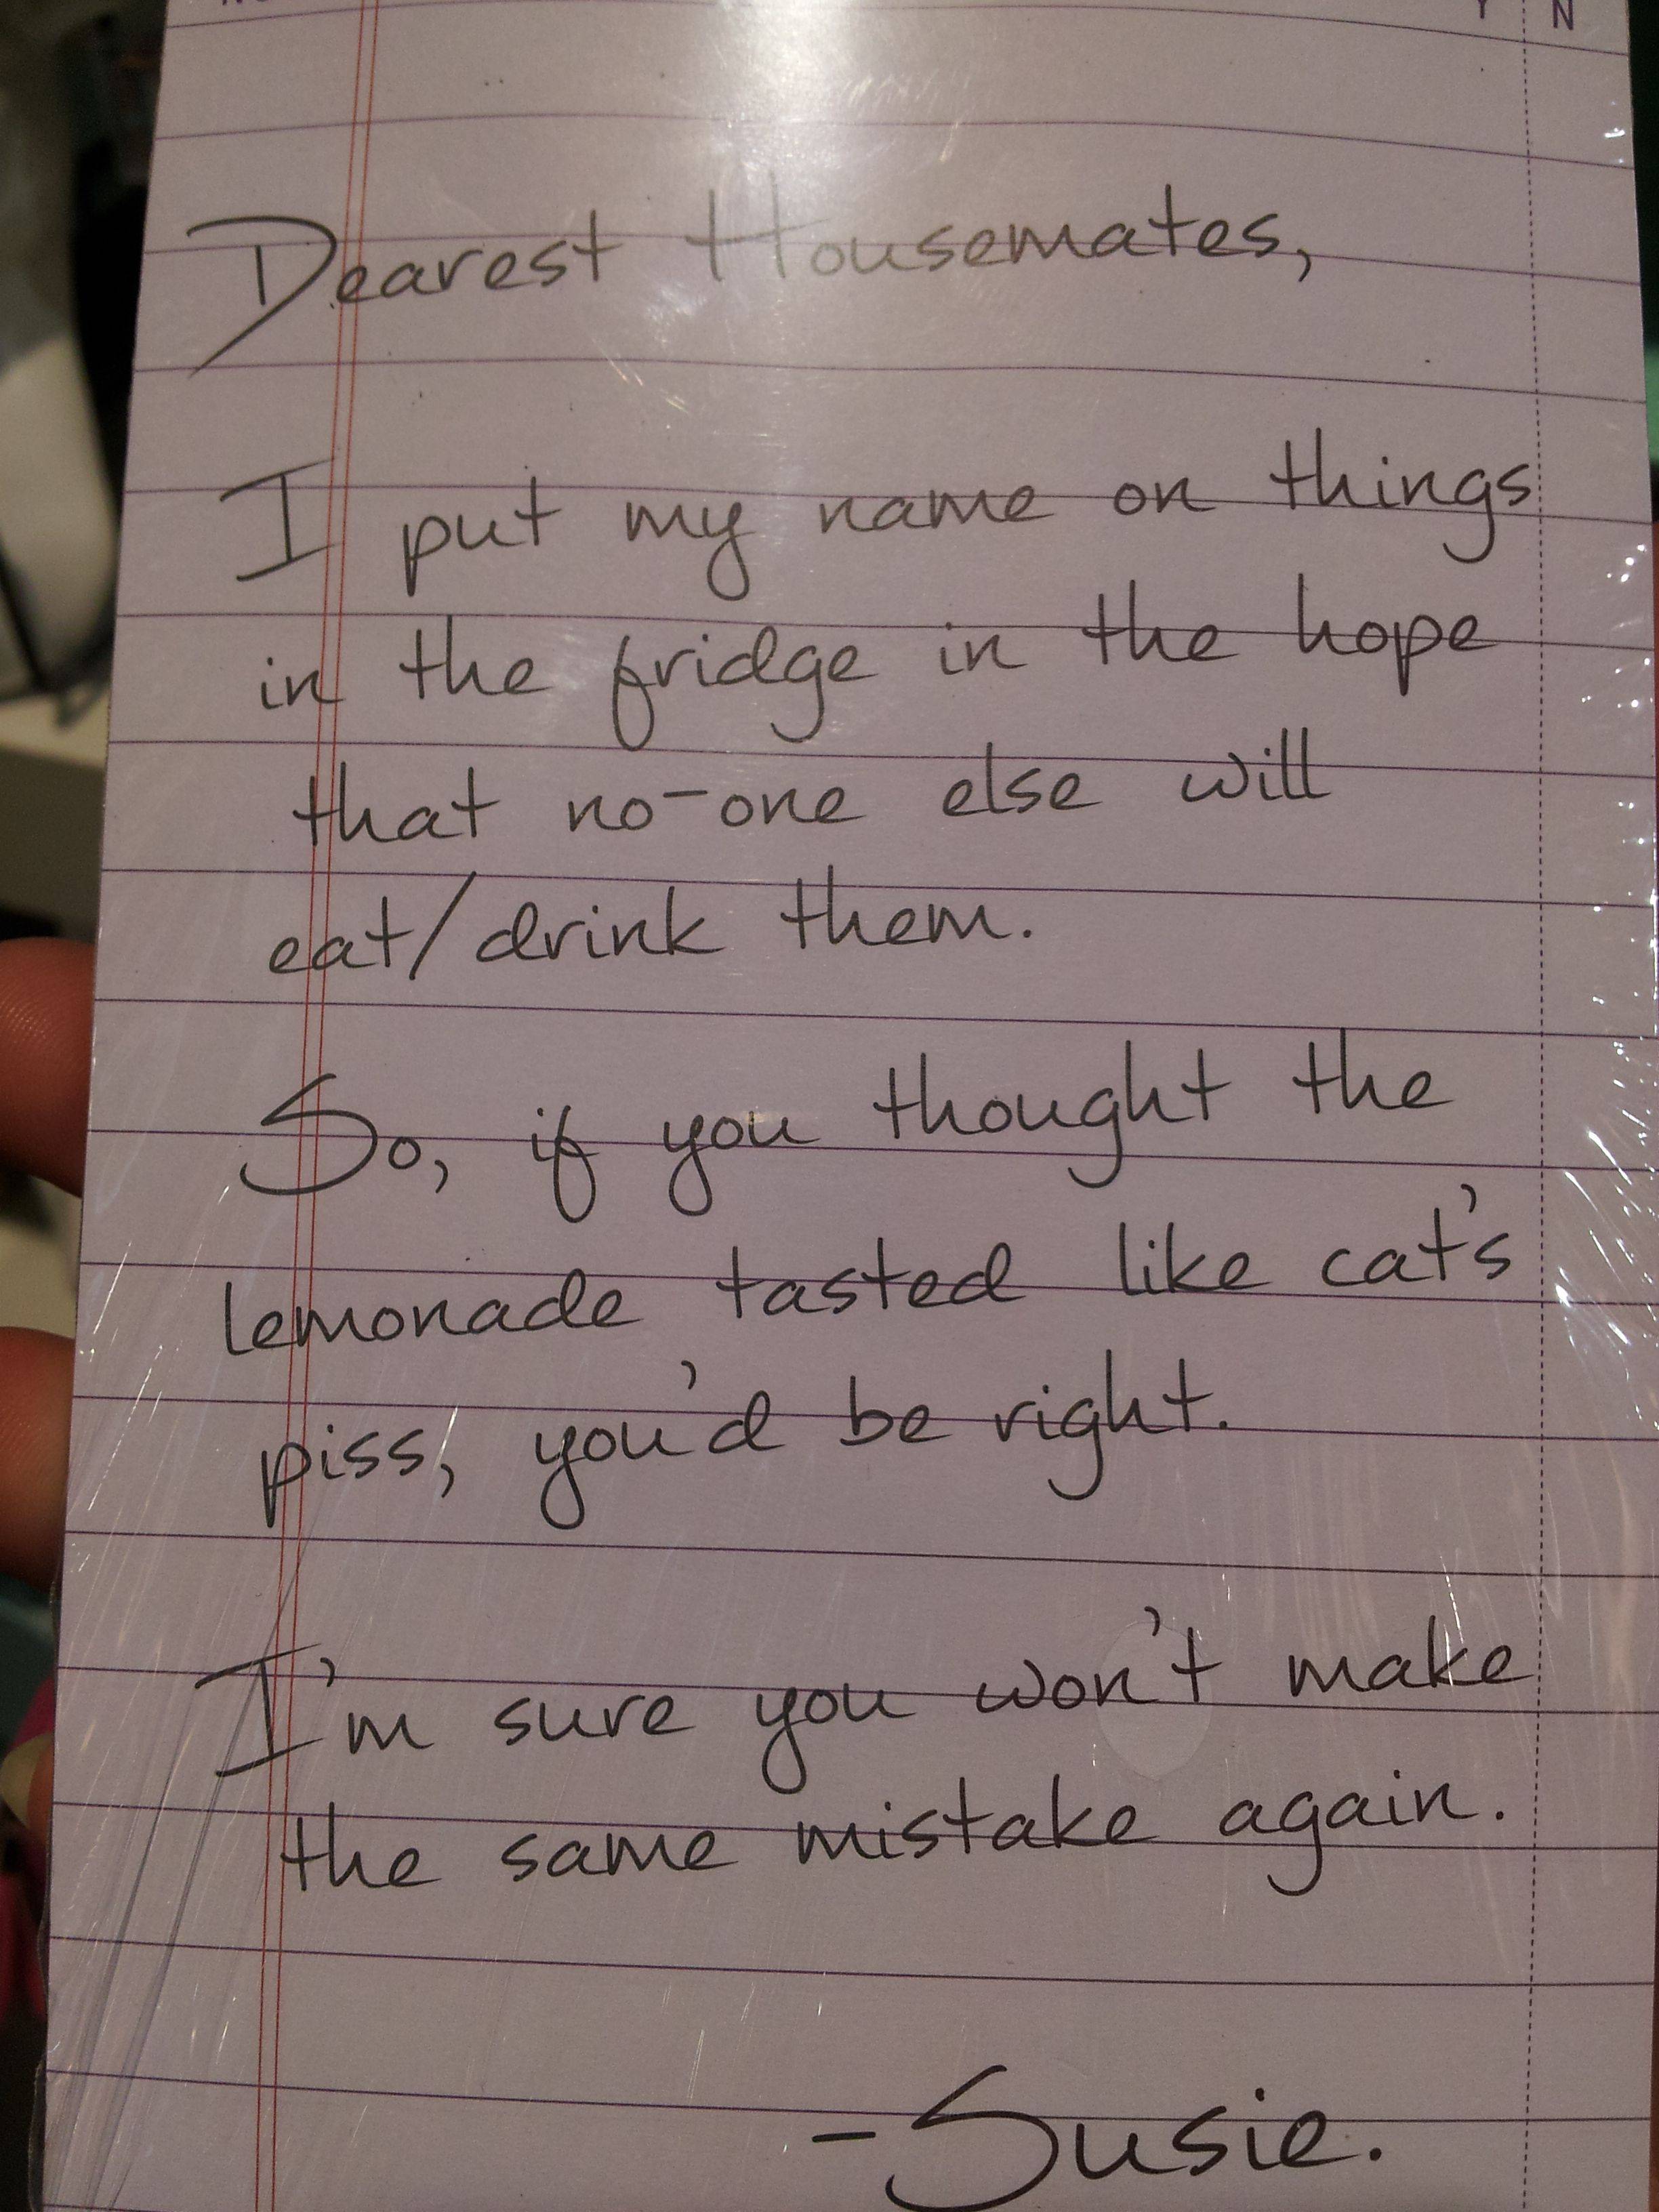 Y N
Dearest Housemates,
I put my name on things
in the fridge in the hope
that no-one else will
eat/drink them.
So, if you thought the
lemonade tasted like cat's
piss, you'd be right.
I'm sure you won't make
the same mistake again.
-Susie.